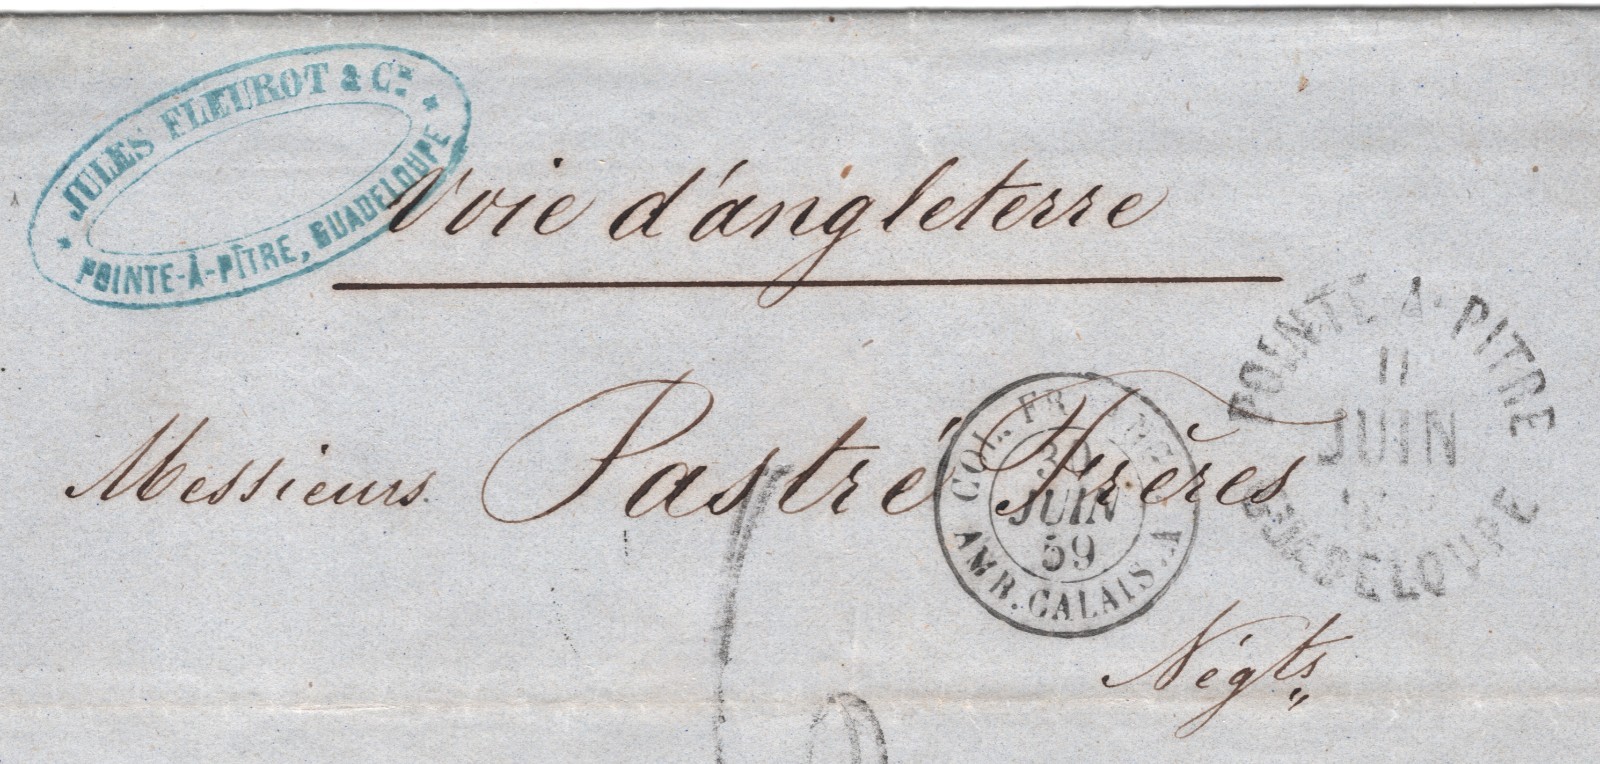 JULES FLEUROT & Cie
POINTE-À-PÎTRE, GUADELOUPE
Voie d'angleterre
POINTE-A-PITRE
11
JUIN
GUADELOUPE
Messieurs Pastré Frères
COL. FR.
30
JUIN
59
AMB. CALAIS. A
Négts